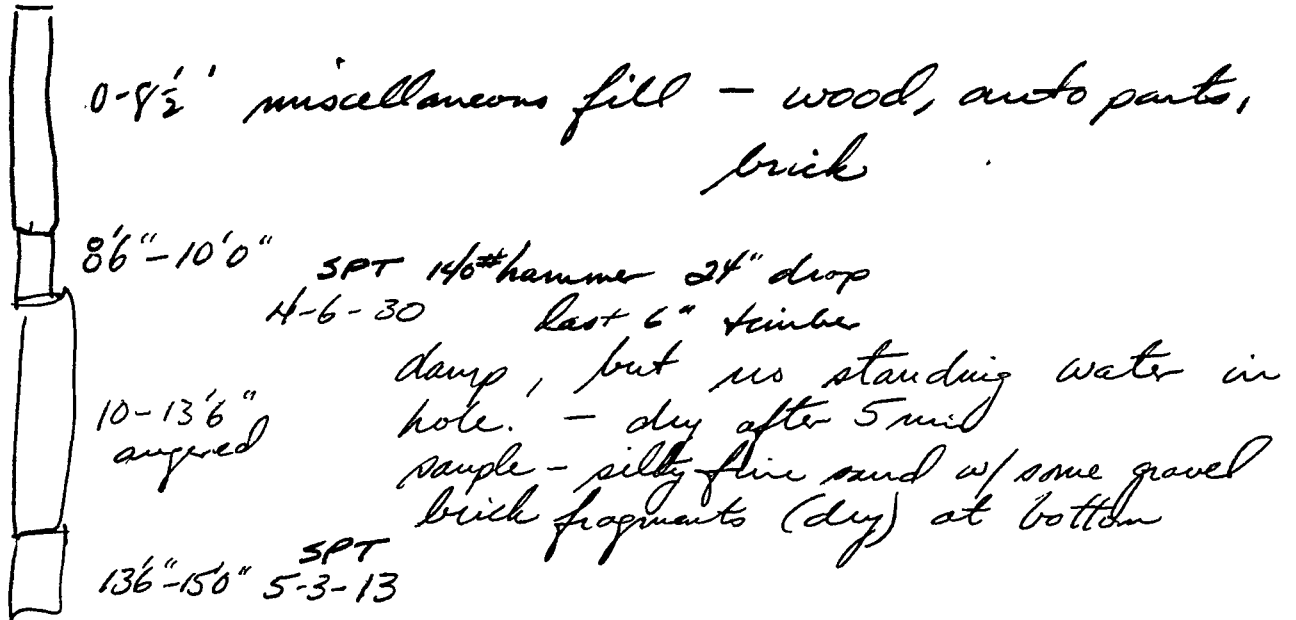 0-8½' miscellaneous fill - wood, auto parts,
brick
8'6"-10'0" SPT 140# hammer 24" drop
4-6-30 last 6" timber
damp, but no standing water in
10-13'6" hole. - dry after 5 min
augered sample - silty fine sand w/ some gravel
brick fragments (dry) at bottom
SPT
13'6"-15'0" 5-3-13